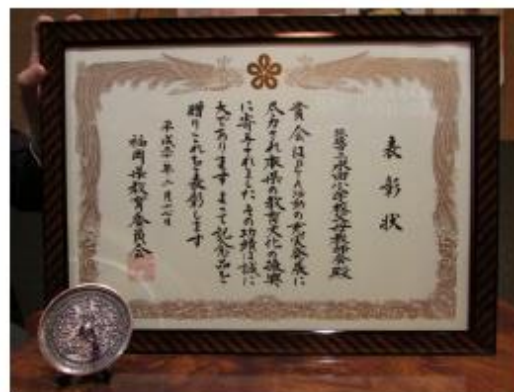 表彰状
水田小学校父母教師会殿
貴会はPTA活動の充実発展に
尽力され本県の教育文化の振興
に寄与されました その功績は誠に
大であります よって記念品を
贈りこれを表彰します
平成 年 月 日
福岡県教育委員会